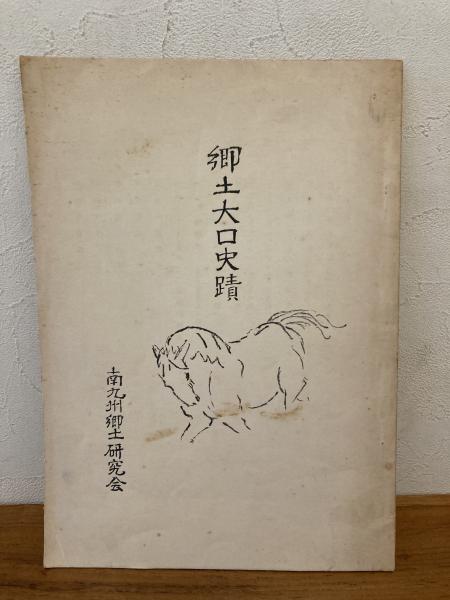 郷土大口史蹟
南九州郷土研究会